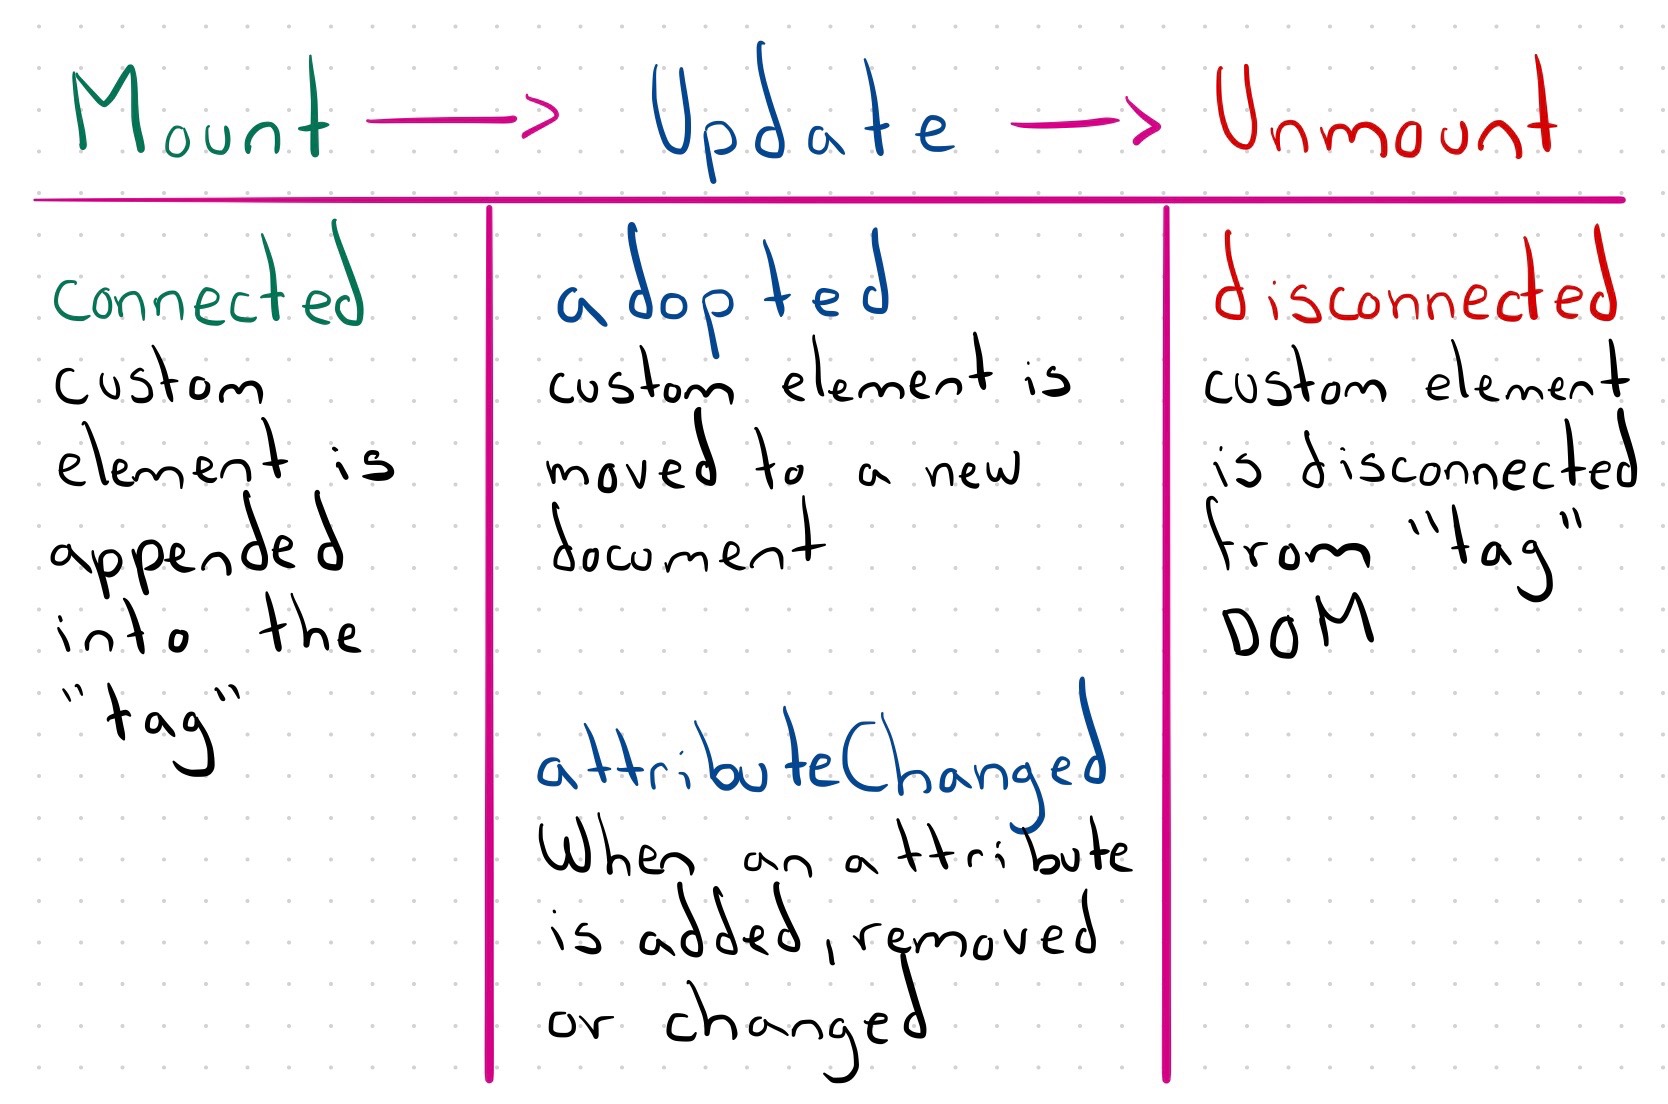 Mount → Update → Unmount
connected
custom
element is
appended
into the
"tag"
adopted
custom element is
moved to a new
document
attributeChanged
When an attribute
is added, removed
or changed
disconnected
custom element
is disconnected
from "tag"
DOM